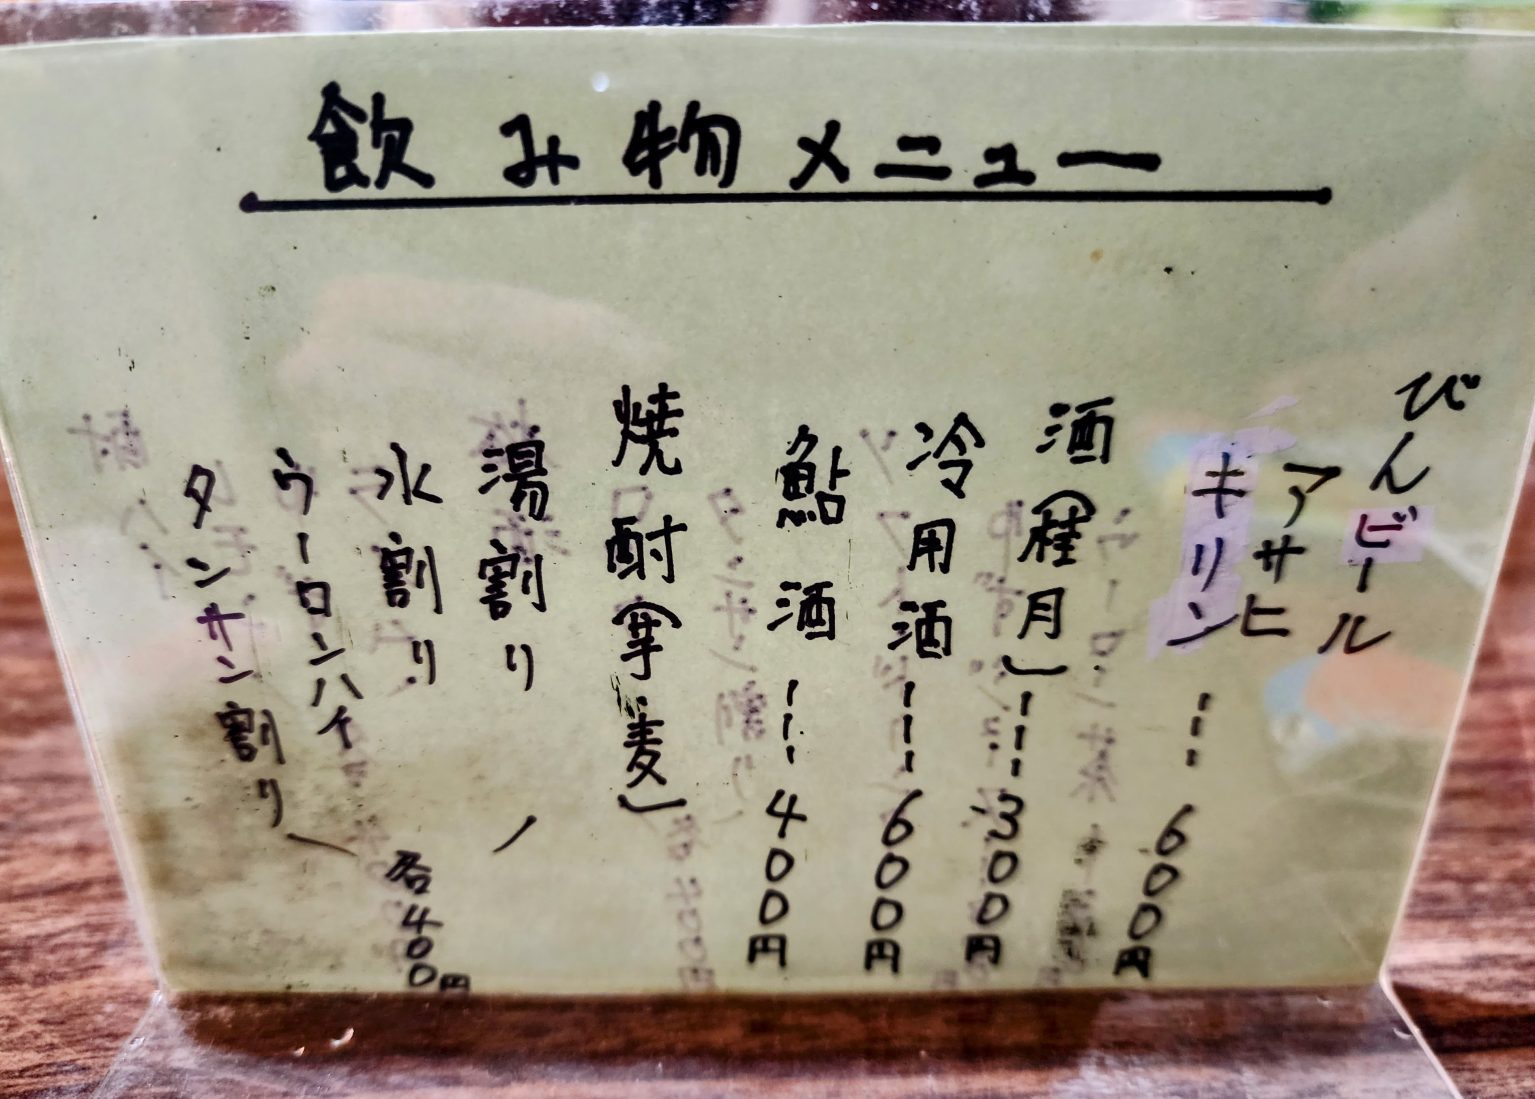 飲み物メニュー
びんビール
アサヒ
キリン --- 600円
酒(桂月) --- 300円
冷用酒 --- 600円
鮎酒 --- 400円
焼酎(芋・麦)
湯割り
水割り
ウーロンハイ
タンサン割り
各400円